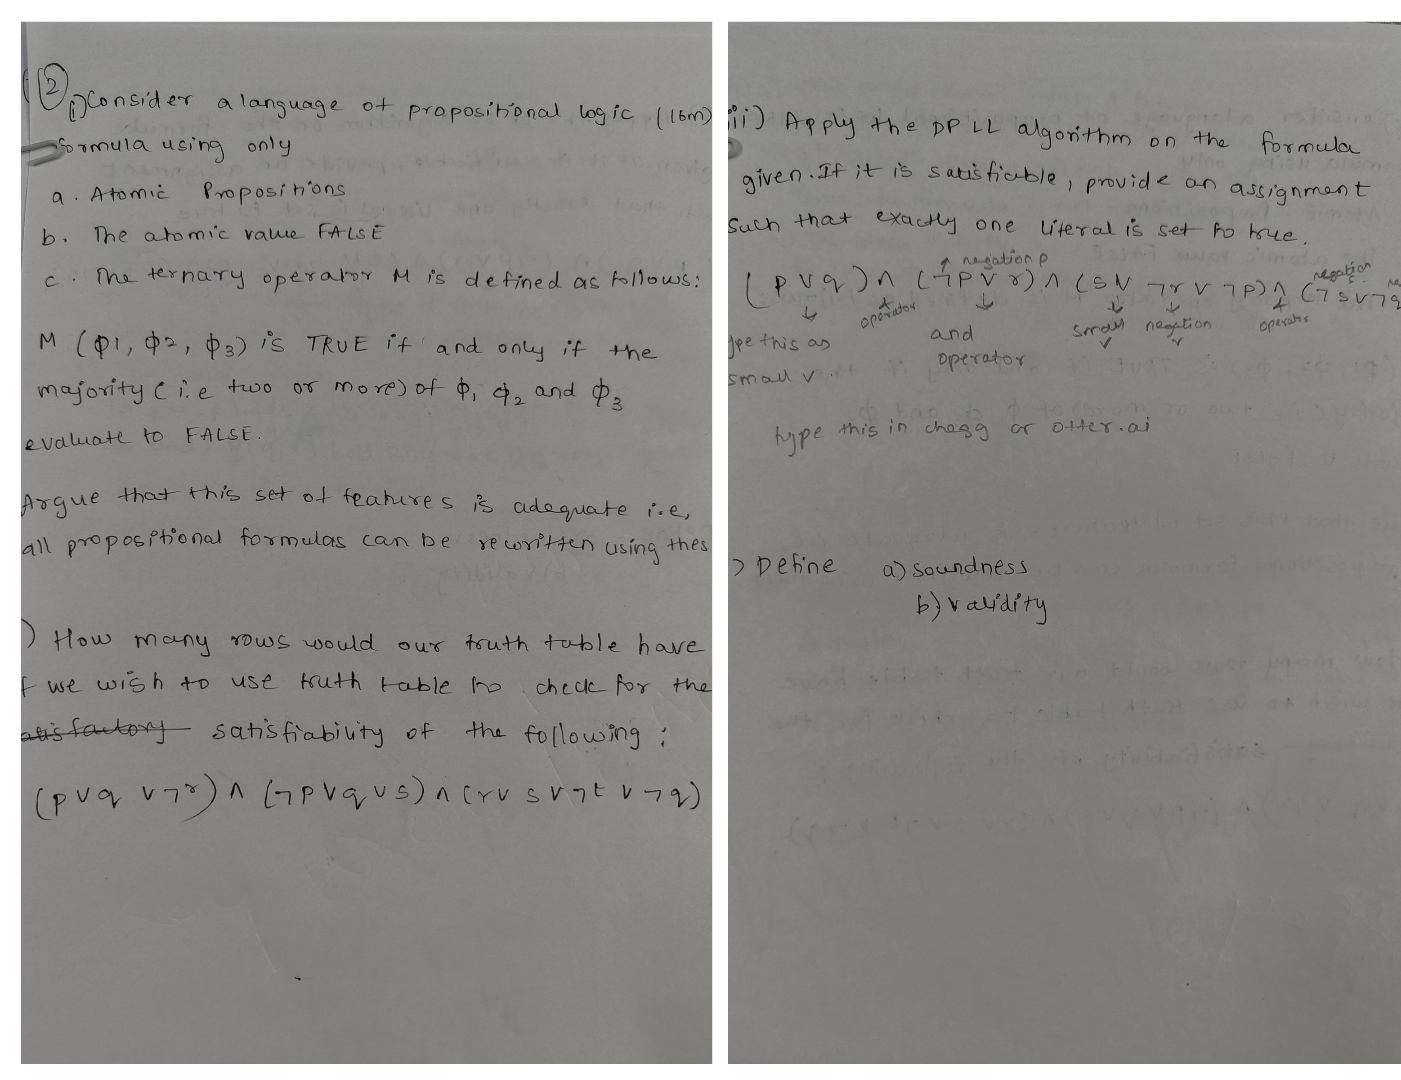 ② i) Consider a language of propositional logic (16m)
formula using only
a. Atomic Propositions
b. The atomic value FALSE
c. The ternary operator M is defined as follows:
M (ϕ1, ϕ2, ϕ3) is TRUE if and only if the
majority (i.e two or more) of ϕ1 ϕ2 and ϕ3
evaluate to FALSE.
Argue that this set of features is adequate i.e,
all propositional formulas can be rewritten using thes
) How many rows would our truth table have
f we wish to use truth table to check for the
satisfiability of the following :
(p ∨ q ∨ ¬r) ∧ (¬p ∨ q ∨ s) ∧ (r ∨ s ∨ ¬t ∨ ¬q)
iii) Apply the DPLL algorithm on the formula
given. If it is satisfiable, provide an assignment
Such that exactly one literal is set to true.
negation p negation ne
(p ∨ q) ∧ (¬p ∨ r) ∧ (s ∨ ¬r ∨ ¬p) ∧ (¬s ∨ ¬q
operator and small negation operator
ype this as operator v v
small v
type this in chegg or otter.ai
) Define a) soundness
b) validity